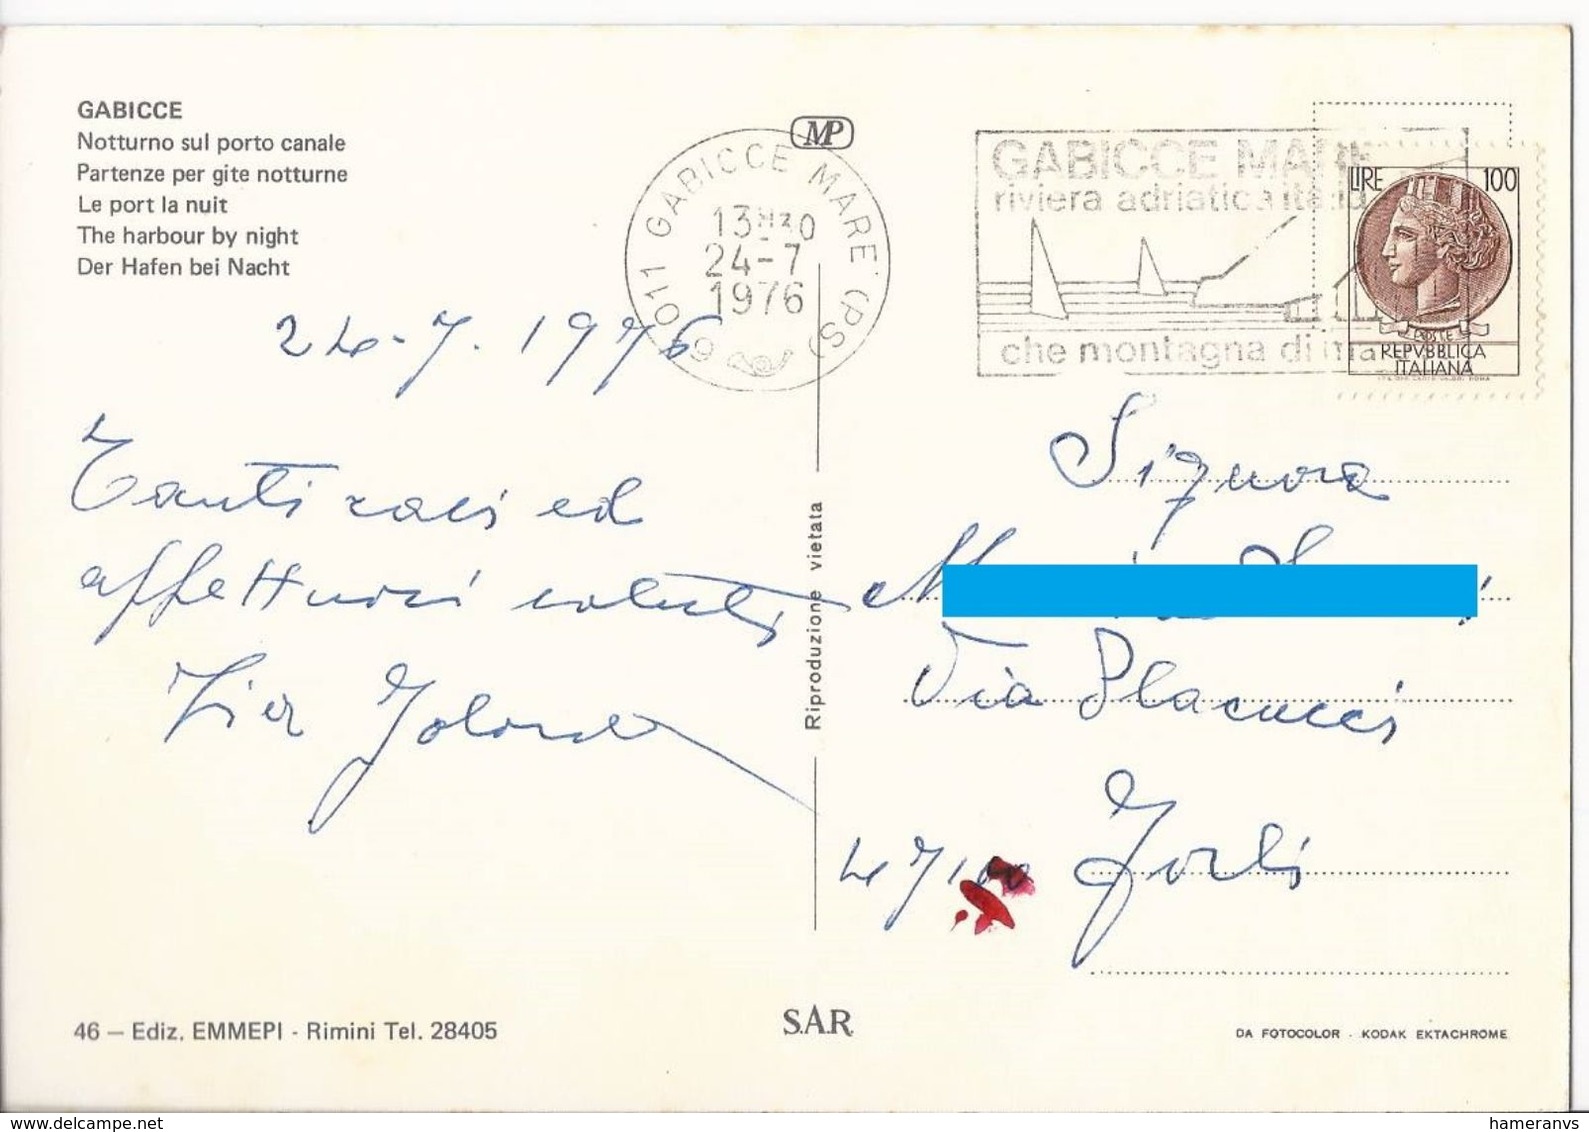 GABICCE
Notturno sul porto canale
Partenze per gite notturne
Le port la nuit
The harbour by night
Der Hafen bei Nacht
MP
61011 GABICCE MARE (PS)
24-7
1976
GABICCE MARE
riviera adriatica italia
che montagna di mare
LIRE 100
POSTE
REPVBBLICA
ITALIANA
24-7-1976
Tanti baci ed
affettuosi saluti
Zia Jolanda
Riproduzione vietata
Signora
Via Placucci
47100 Forlì
46 – Ediz. EMMEPI - Rimini Tel. 28405
S.A.R.
DA FOTOCOLOR - KODAK EKTACHROME
hameranvs